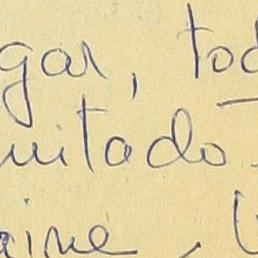 gar, tod
uitado.
aine, U